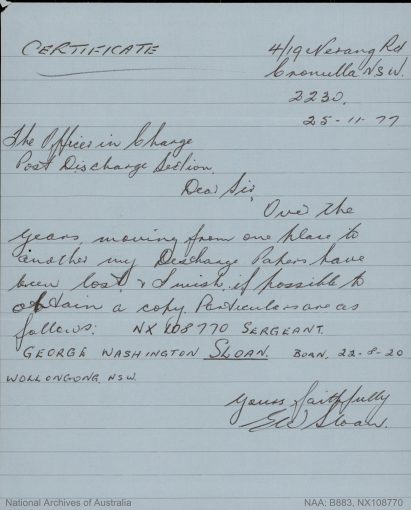 CERTIFICATE
4/19 Nerang Rd
Cronulla NSW.
2230.
25-11-77
The Officer in Charge
Post Discharge Section.
Dear Sir,
Over the
years, moving from one place to
another my Discharge Papers have
been lost & I wish, if possible to
obtain a copy. Particulars are as
follows: NX 108770 SERGEANT.
GEORGE WASHINGTON SLOAN. BORN. 22-8-20
WOLLONGONG, NSW.
Yours faithfully
GW Sloan.
National Archives of Australia
NAA: B883, NX108770